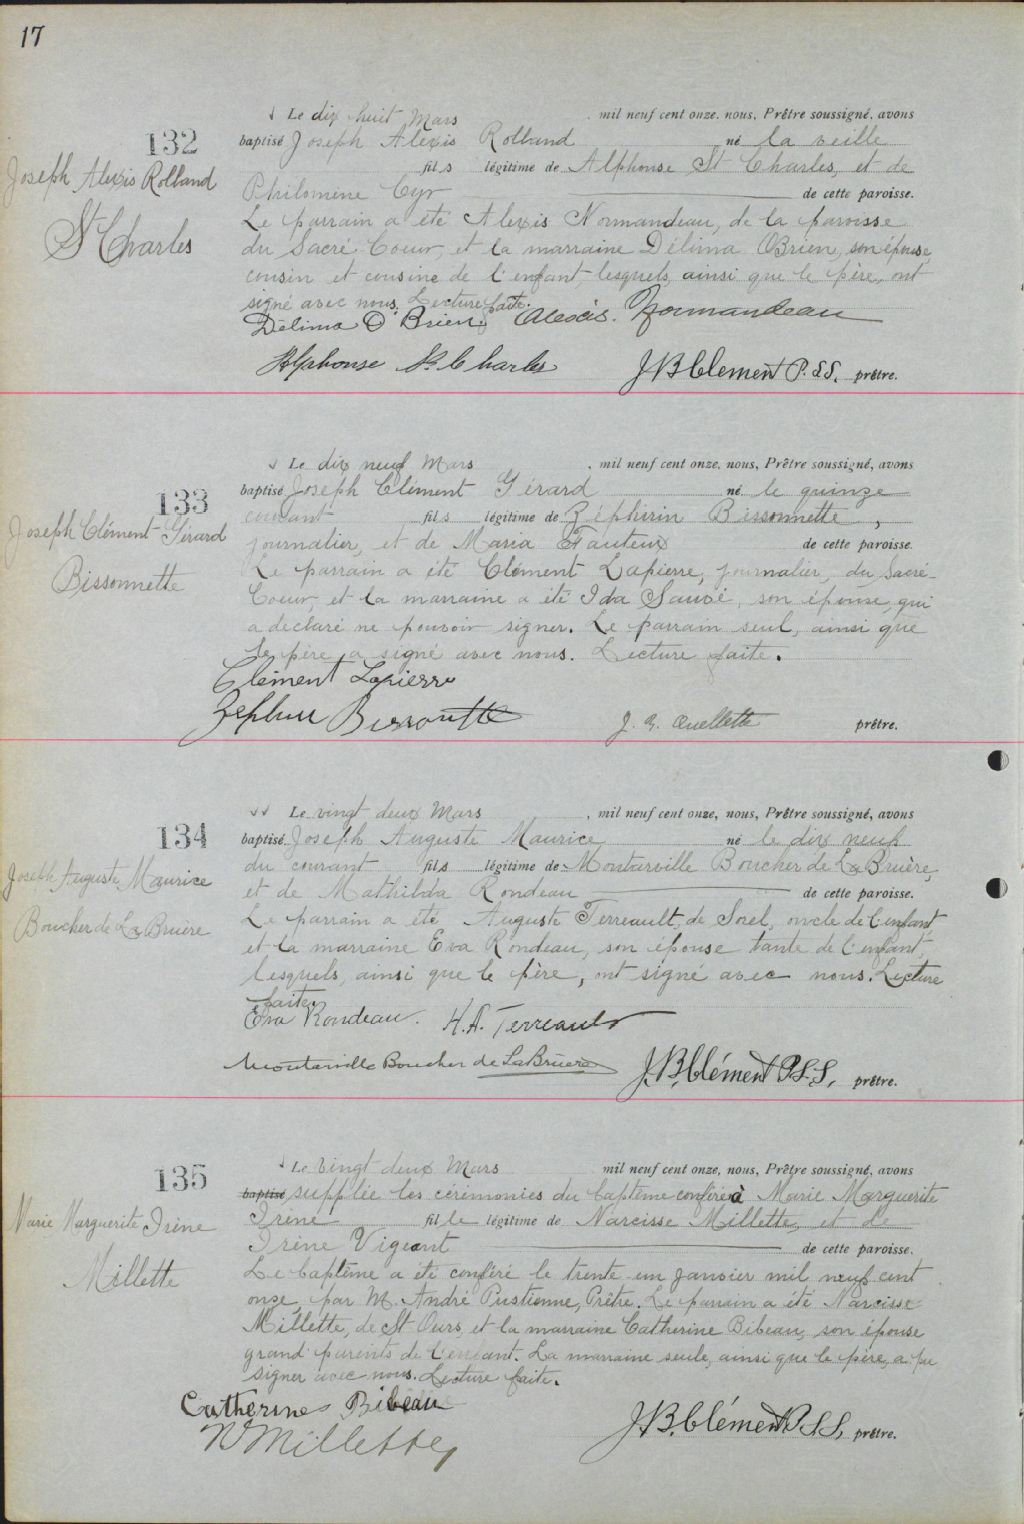 17
132
Joseph Alexis Rolland
St Charles
Le dix huit Mars mil neuf cent onze, nous, Prêtre soussigné, avons
baptisé Joseph Alexis Rolland né la veille
fils légitime de Alphonse St Charles, et de
Philomène Cyr de cette paroisse.
Le parrain a été Alexis Normandeau, de la paroisse
du Sacré-Coeur, et la marraine Délima O'Brien, son épouse,
cousin et cousine de l'enfant, lesquels, ainsi que le père, ont
signé avec nous. Lecture faite.
Délima O'Brien Alexis Normandeau
Alphonse St Charles J.B. Clément P.S.S. prêtre.
133
Joseph Clément Gérard
Bissonnette
Le dix neuf Mars, mil neuf cent onze, nous, Prêtre soussigné, avons
baptisé Joseph Clément Gérard né le quinze
courant fils légitime de Zéphirin Bissonnette,
journalier, et de Maria Fauteux de cette paroisse.
Le parrain a été Clément Lapierre, journalier, du Sacré-
Coeur, et la marraine a été Ida Sauvé, son épouse, qui
a déclaré ne pouvoir signer. Le parrain seul, ainsi que
le père, a signé avec nous. Lecture faite.
Clément Lapierre
Zéphir Bissonette J. Ouellette prêtre.
134
Joseph Auguste Maurice
Boucher de La Bruère
Le vingt deux Mars, mil neuf cent onze, nous, Prêtre soussigné, avons
baptisé Joseph Auguste Maurice né le dix neuf
du courant fils légitime de Montarville Boucher de La Bruère,
et de Mathilda Rondeau de cette paroisse.
Le parrain a été Auguste Terreault, de Sorel, oncle de l'enfant,
et la marraine Eva Rondeau, son épouse tante de l'enfant,
lesquels, ainsi que le père, ont signé avec nous. Lecture
faite.
Eva Rondeau. H.A. Terreault
Montarville Boucher de LaBruère J.B. Clément P.S.S, prêtre.
135
Marie Marguerite Irène
Millette
Le vingt deux Mars mil neuf cent onze, nous, Prêtre soussigné, avons
baptisé suppléé les cérémonies du baptême conféré à Marie Marguerite
Irène fille légitime de Narcisse Millette, et de
Irène Vigeant de cette paroisse.
Le baptême a été conféré le trente-un Janvier mil neuf cent
onze, par M. André Pustienne, Prêtre. Le parrain a été Narcisse
Millette, de St Ours, et la marraine Catherine Bibeau, son épouse
grand' parents de l'enfant. La marraine seule, ainsi que le père, a pu
signer avec nous. Lecture faite.
Catherine Bibeau
N Millette, J.B. Clément P.S.S, prêtre.